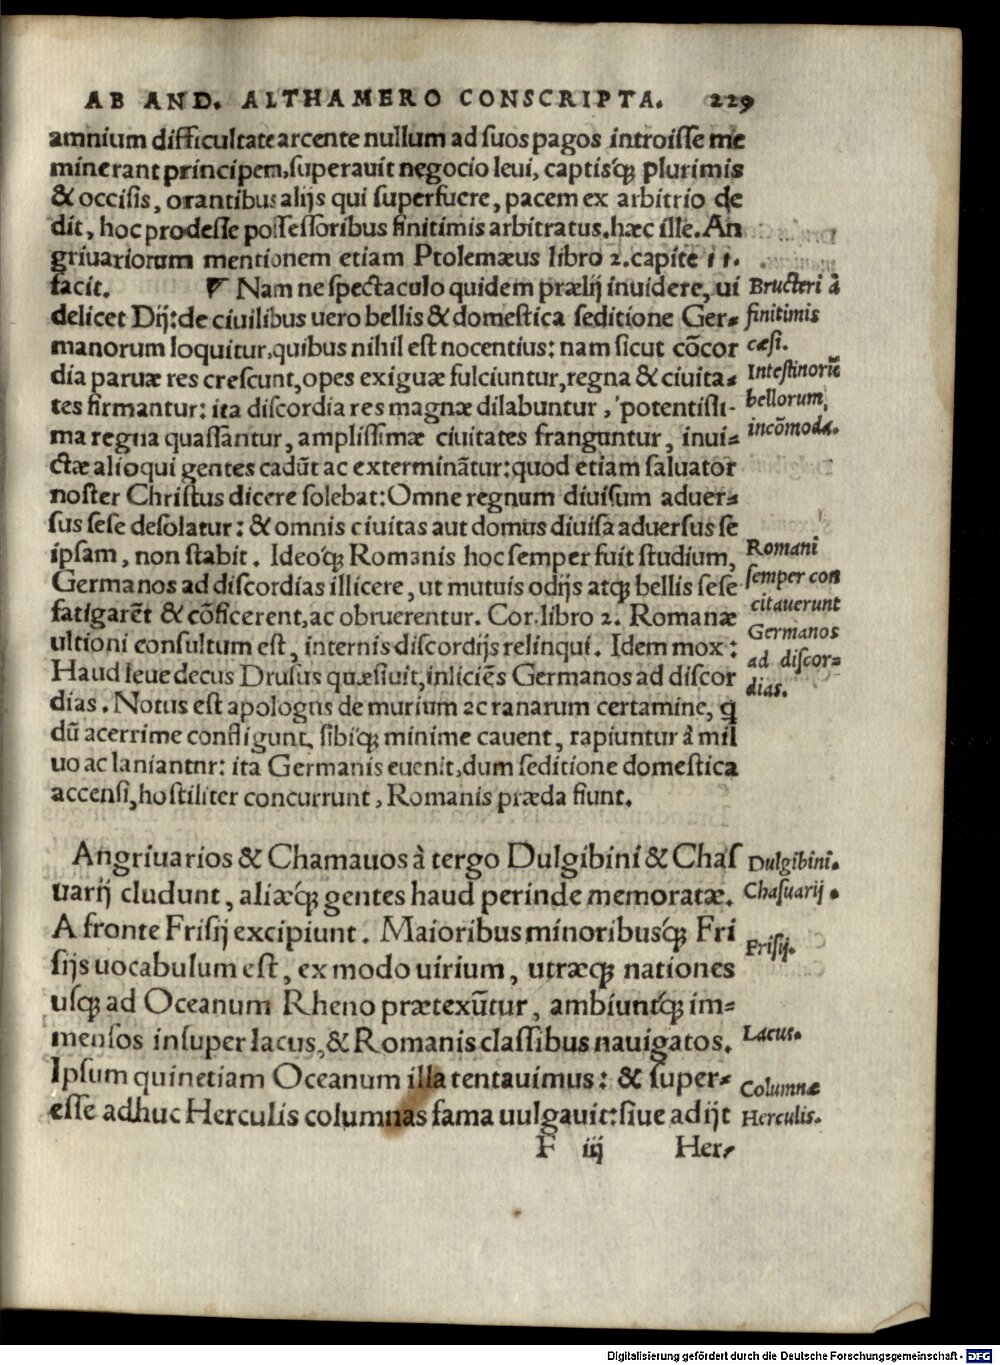 AB AND. ALTHAMERO CONSCRIPTA. 229
amnium difficultate arcente nullum ad suos pagos introisse me
minerant principem, superauit negocio leui, captisq́ꝫ plurimis
& occisis, orantibus alijs qui superfuere, pacem ex arbitrio de
dit, hoc prodesse possessoribus finitimis arbitratus. hæc ille. An
griuariorum mentionem etiam Ptolemæus libro 2. capite 11.
facit. Nam ne spectaculo quidem prælij inuidere, ui
delicet Dij: de ciuilibus uero bellis & domestica seditione Ger=
manorum loquitur, quibus nihil est nocentius: nam sicut cōcor
dia paruæ res crescunt, opes exiguæ fulciuntur, regna & ciuita=
tes firmantur: ita discordia res magnæ dilabuntur, potentissi-
ma regna quassantur, amplissimæ ciuitates franguntur, inui=
ctæ alioqui gentes cadūt ac exterminātur: quod etiam saluator
noster Christus dicere solebat: Omne regnum diuisum aduer=
sus sese desolatur: & omnis ciuitas aut domus diuisa aduersus se
ipsam, non stabit. Ideoq́ꝫ Romanis hoc semper fuit studium,
Germanos ad discordias illicere, ut mutuis odijs atqꝫ bellis sese
fatigarēt & cōficerent, ac obruerentur. Cor. libro 2. Romanæ
ultioni consultum est, internis discordijs relinqui. Idem mox:
Haud leue decus Drusus quæsiuit, inliciēs Germanos ad discor
dias. Notus est apologus de murium ac ranarum certamine, q
dū acerrime confligunt, sibiq́ꝫ minime cauent, rapiuntur à mil
uo ac laniantnr: ita Germanis euenit, dum seditione domestica
accensi, hostiliter concurrunt, Romanis præda fiunt.
Bructeri à
finitimis
cæsi.
Intestinorū
bellorum,
incōmoda.
Romani
semper con
citauerunt
Germanos
ad discor=
dias.
Angriuarios & Chamauos à tergo Dulgibini & Chas
uarij cludunt, aliæq́ꝫ gentes haud perinde memoratæ.
A fronte Frisij excipiunt. Maioribus minoribusq́ꝫ Fri
sijs uocabulum est, ex modo uirium, utræqꝫ nationes
usqꝫ ad Oceanum Rheno prætexūtur, ambiuntq́ꝫ im=
mensos insuper lacus, & Romanis classibus nauigatos.
Ipsum quinetiam Oceanum illa tentauimus: & super=
esse adhuc Herculis columnas fama uulgauit: siue adijt
Dulgibini.
Chasuarij.
Frisij.
Lacus.
Columnæ
Herculis.
F iij Her=
Digitalisierung gefördert durch die Deutsche Forschungsgemeinschaft - DFG